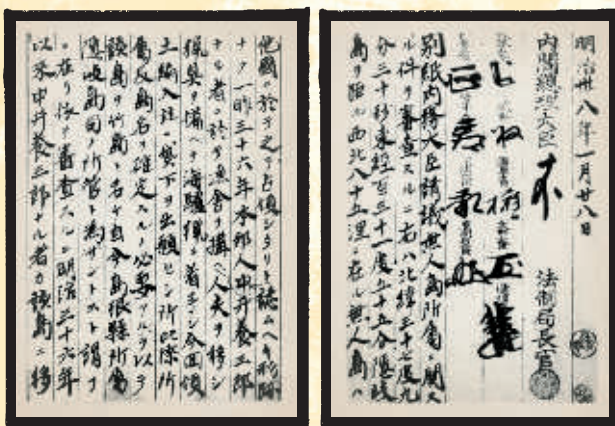 明治卅八年一月廿八日
内閣總理大臣
法制局長官
別紙内務大臣請議無人島所属ニ関ス
ル件ヲ審査スルニ右ハ北緯三十七度九
分三十秒東経百三十一度五十五分隠岐
島ヲ距ル西北八十五浬ニ在ル無人島ハ
他國ニ於テ之ヲ占領シタリト認ムヘキ形跡
ナク一昨三十六年本邦人中井養三郎
ナル者ニ於テ漁舎ヲ構ヘ人夫ヲ移シ
猟具ヲ備ヘテ海驢猟ニ着手シ今回領
土編入並ニ貸下ヲ出願セシ所此際所
属及島名ヲ確定スルノ必要アルヲ以テ
該島ヲ竹島ト名ケ自今島根縣所属
隠岐島司ノ所管ト為サントスト謂フ
ニ在リ依テ審査スルニ明治三十六年
以来中井養三郎ナル者カ該島ニ移